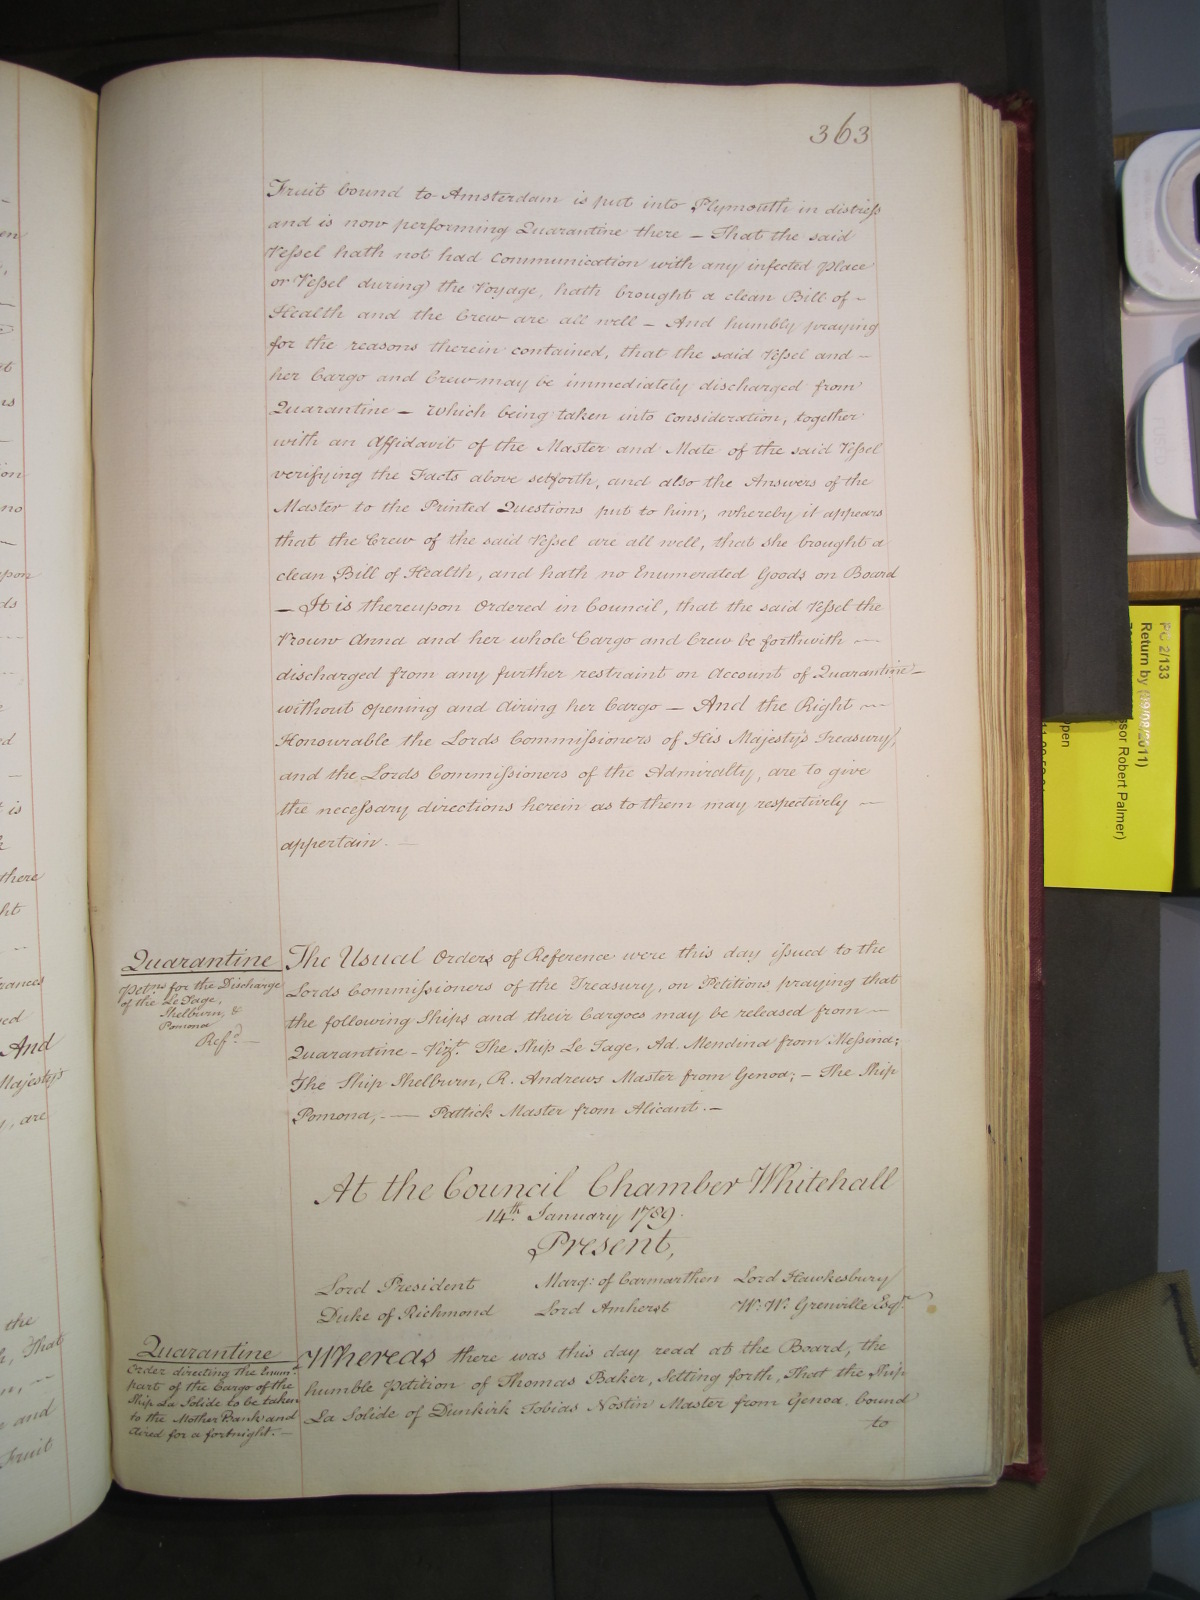 363
Fruit bound to Amsterdam is put into Plymouth in distress
and is now performing Quarantine there — That the said
Vessel hath not had Communication with any infected Place
or Vessel during the Voyage, hath brought a clean Bill of –
Health and the Crew are all well – And humbly praying
for the reasons therein contained, that the said Vessel and –
her Cargo and Crew may be immediately discharged from
Quarantine – which being taken into Consideration, together
with an Affidavit of the Master and Mate of the said Vessel
verifying the Facts above setforth, and also the Answers of the
Master to the Printed Questions put to him, whereby it appears
that the Crew of the said Vessel are all well, that she brought a
clean Bill of Health, and hath no Enumerated Goods on Board
– It is thereupon Ordered in Council, that the said Vessel the
Vrouw Anna and her whole Cargo and Crew be forthwith —
discharged from any further restraint on Account of Quarantine –
without Opening and Airing her Cargo – And the Right —
Honourable the Lords Commissioners of His Majesty's Treasury,
and the Lords Commissioners of the Admiralty, are to give
the necessary directions herein as to them may respectively —
appertain. —
Quarantine
Petns. for the Discharge
of the Le Tage,
Shelburn, &
Pomona
Refd. —
The Usual Orders of Reference were this day issued to the
Lords Commissioners of the Treasury, on Petitions praying that
the following Ships and their Cargoes may be released from —
Quarantine – Vizt. The Ship Le Tage, Ad. Mendind from Messina;
The Ship Shelburn, R. Andrews Master from Genoa; – The Ship
Pomona, —— Pattick Master from Alicant. –
At the Council Chamber Whitehall
14th. January 1789.
Present,
Lord President Marq: of Carmarthen Lord Hawkesbury
Duke of Richmond Lord Amherst W. W. Grenville Esqr.
Quarantine
Order directing the Enumd.
part of the Cargo of the
Ship La Solide to be taken
to the Mother Bank and
Aired for a fortnight. —
Whereas there was this day read at the Board, the
humble Petition of Thomas Baker, Setting forth, That the Ship
La Solide of Dunkirk Tobias Nostin Master from Genoa, bound
to
PC 2/133
Return by (09/08/2011)
ssor Robert Palmer)
pen